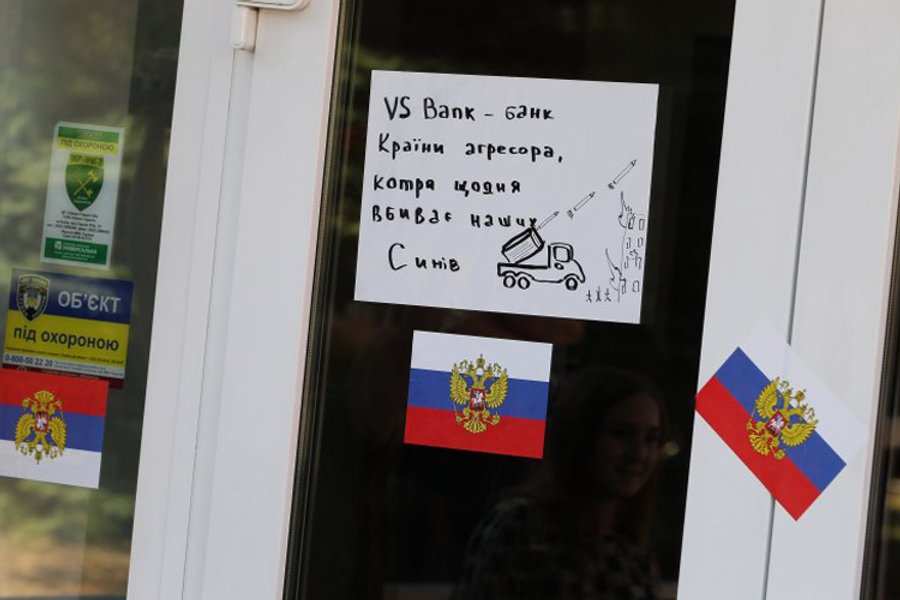 VS Bank – банк
Країни агресора,
котра щодня
вбиває наших
Синів
ПІД ОХОРОНОЮ
ОБ'ЄКТ
під охороною
0-800-50 22 20